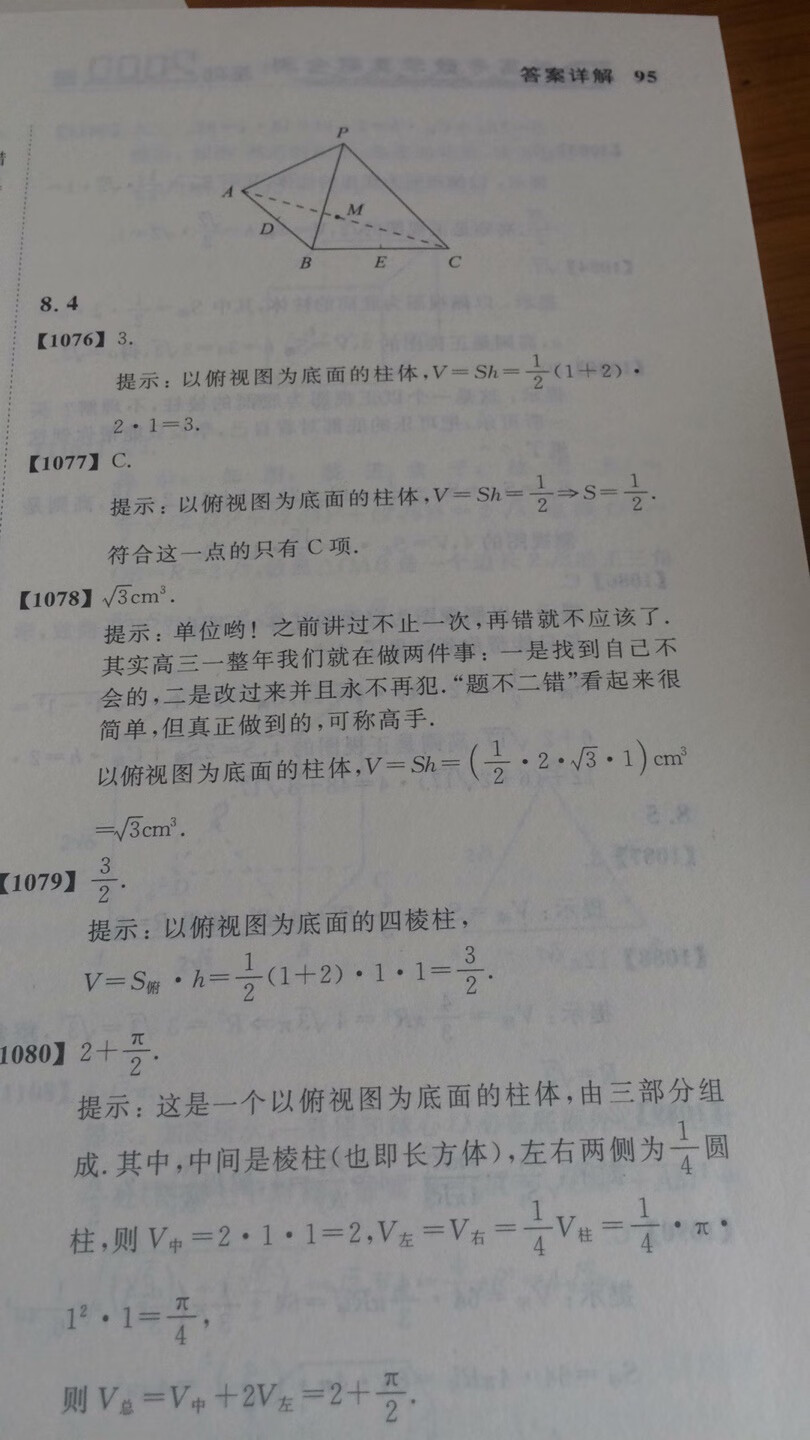 答案详解 95
P
A
M
D
B E C
8.4
【1076】3.
提示:以俯视图为底面的柱体,V=Sh=\frac{1}{2}(1+2)·
2·1=3.
【1077】C.
提示:以俯视图为底面的柱体,V=Sh=\frac{1}{2}⇒S=\frac{1}{2}.
符合这一点的只有 C 项.
【1078】√3cm³.
提示:单位哟!之前讲过不止一次,再错就不应该了.
其实高三一整年我们就在做两件事:一是找到自己不
会的,二是改过来并且永不再犯.“题不二错”看起来很
简单,但真正做到的,可称高手.
以俯视图为底面的柱体,V=Sh=(\frac{1}{2}·2·√3·1)cm³
=√3cm³.
【1079】\frac{3}{2}.
提示:以俯视图为底面的四棱柱,
V=S俯·h=\frac{1}{2}(1+2)·1·1=\frac{3}{2}.
1080】2+\frac{π}{2}.
提示:这是一个以俯视图为底面的柱体,由三部分组
成.其中,中间是棱柱(也即长方体),左右两侧为\frac{1}{4}圆
柱,则 V中=2·1·1=2,V左=V右=\frac{1}{4}V柱=\frac{1}{4}·π·
1²·1=\frac{π}{4},
则 V总=V中+2V左=2+\frac{π}{2}.